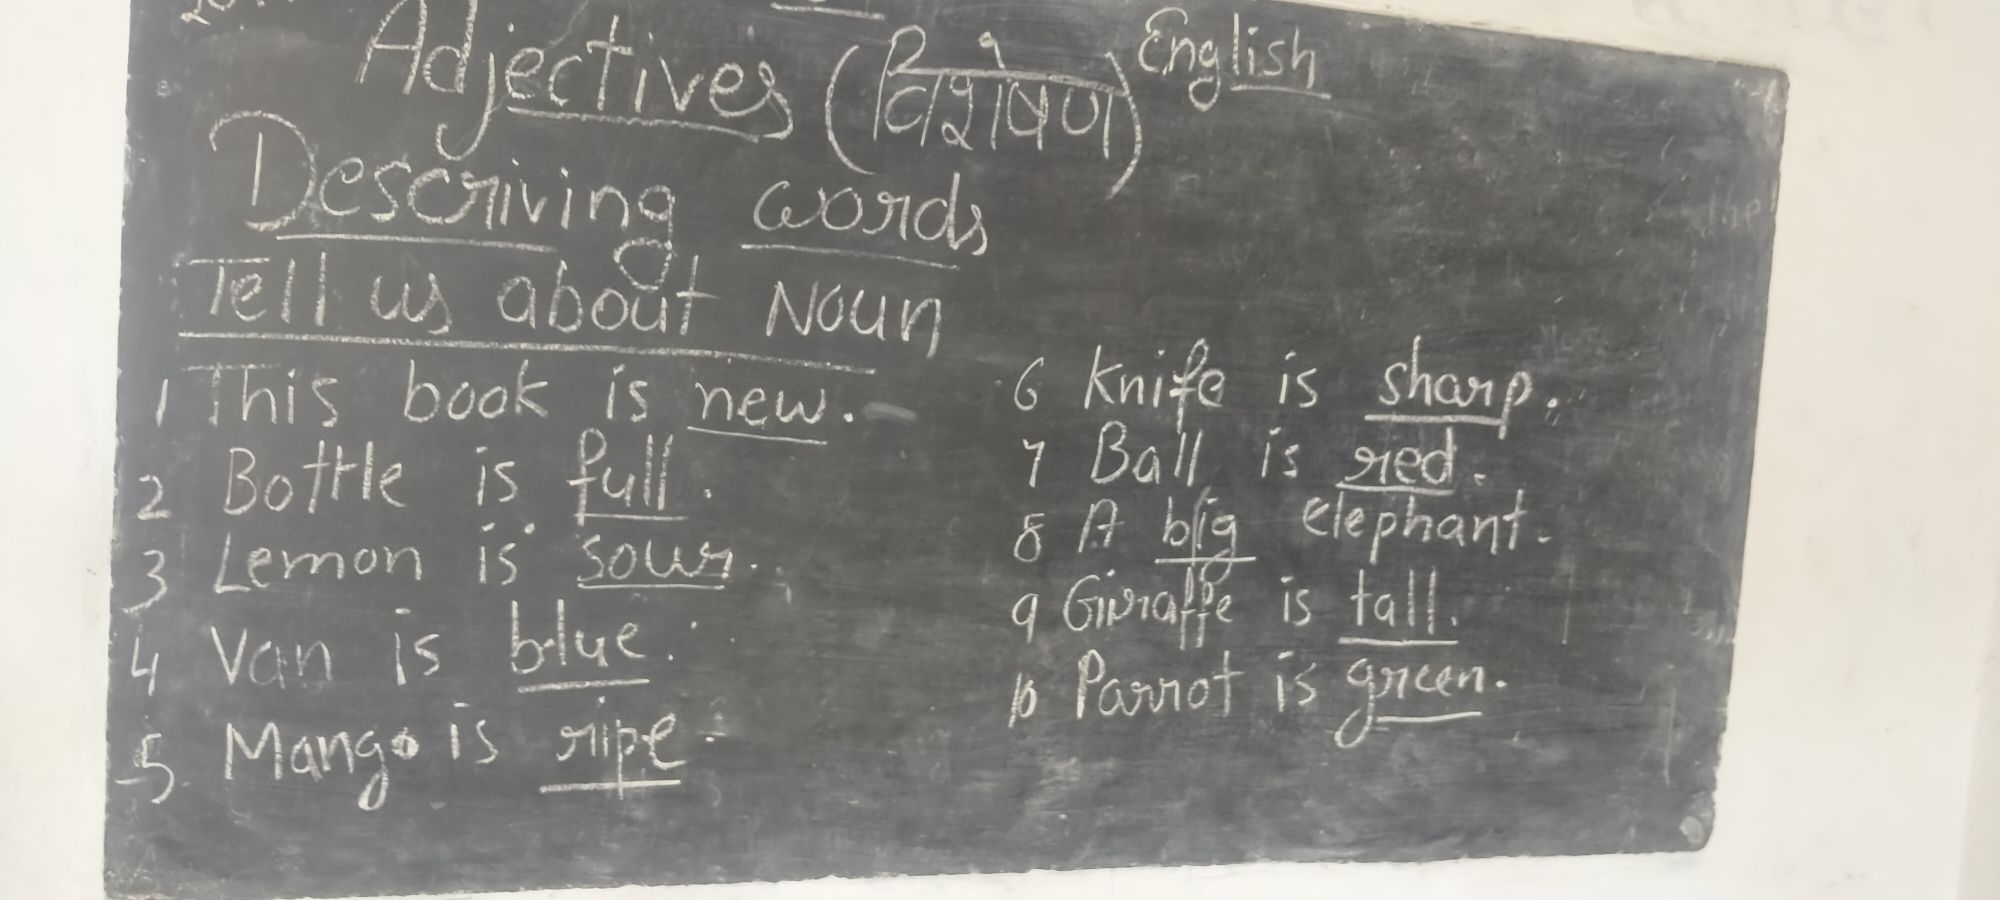 Adjectives (विशेषण) English
Descriving words
Tell us about Noun
1 This book is new.
2 Bottle is full.
3 Lemon is sour.
4 Van is blue.
5 Mango is ripe.
6 Knife is sharp.
7 Ball is red.
8 A big elephant.
9 Giraffe is tall.
10 Parrot is green.